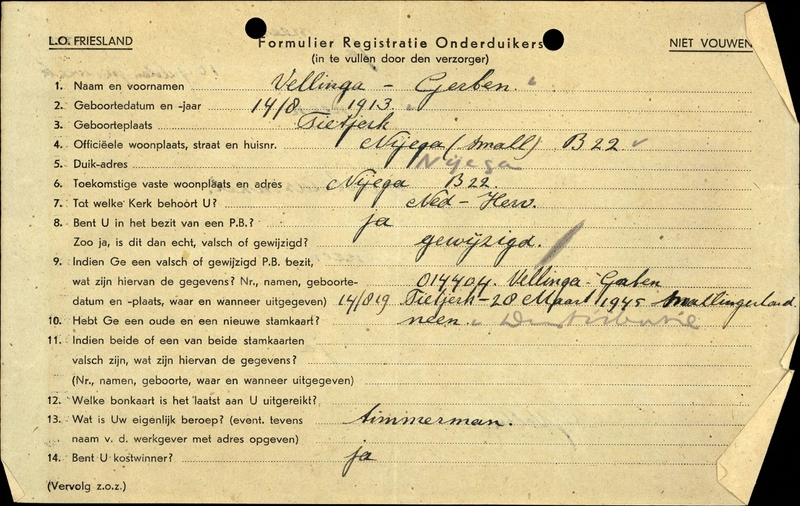 L.O. FRIESLAND
Formulier Registratie Onderduikers
NIET VOUWEN
(in te vullen door den verzorger)
1. Naam en voornamen Vellinga - Gerben.
2. Geboortedatum en -jaar 14/8 1913.
3. Geboorteplaats Tietjerk
4. Officiëele woonplaats, straat en huisnr. Nijega (Small) B 22
5. Duik-adres Nijega
6. Toekomstige vaste woonplaats en adres Nijega B 22.
7. Tot welke Kerk behoort U? Ned - Herv.
8. Bent U in het bezit van een P.B.? ja
Zoo ja, is dit dan echt, valsch of gewijzigd? gewijzigd.
9. Indien Ge een valsch of gewijzigd P.B. bezit,
wat zijn hiervan de gegevens? Nr., namen, geboorte- 014404. Vellinga - Gerben
datum en -plaats, waar en wanneer uitgegeven) 14/819 Tietjerk - 28 Maart 1945 Smallingerland.
10. Hebt Ge een oude en een nieuwe stamkaart? neen. Distributie
11. Indien beide of een van beide stamkaarten
valsch zijn, wat zijn hiervan de gegevens?
(Nr., namen, geboorte, waar en wanneer uitgegeven)
12. Welke bonkaart is het laatst aan U uitgereikt?
13. Wat is Uw eigenlijk beroep? (event. tevens timmerman.
naam v. d. werkgever met adres opgeven)
14. Bent U kostwinner? ja
(Vervolg z.o.z.)